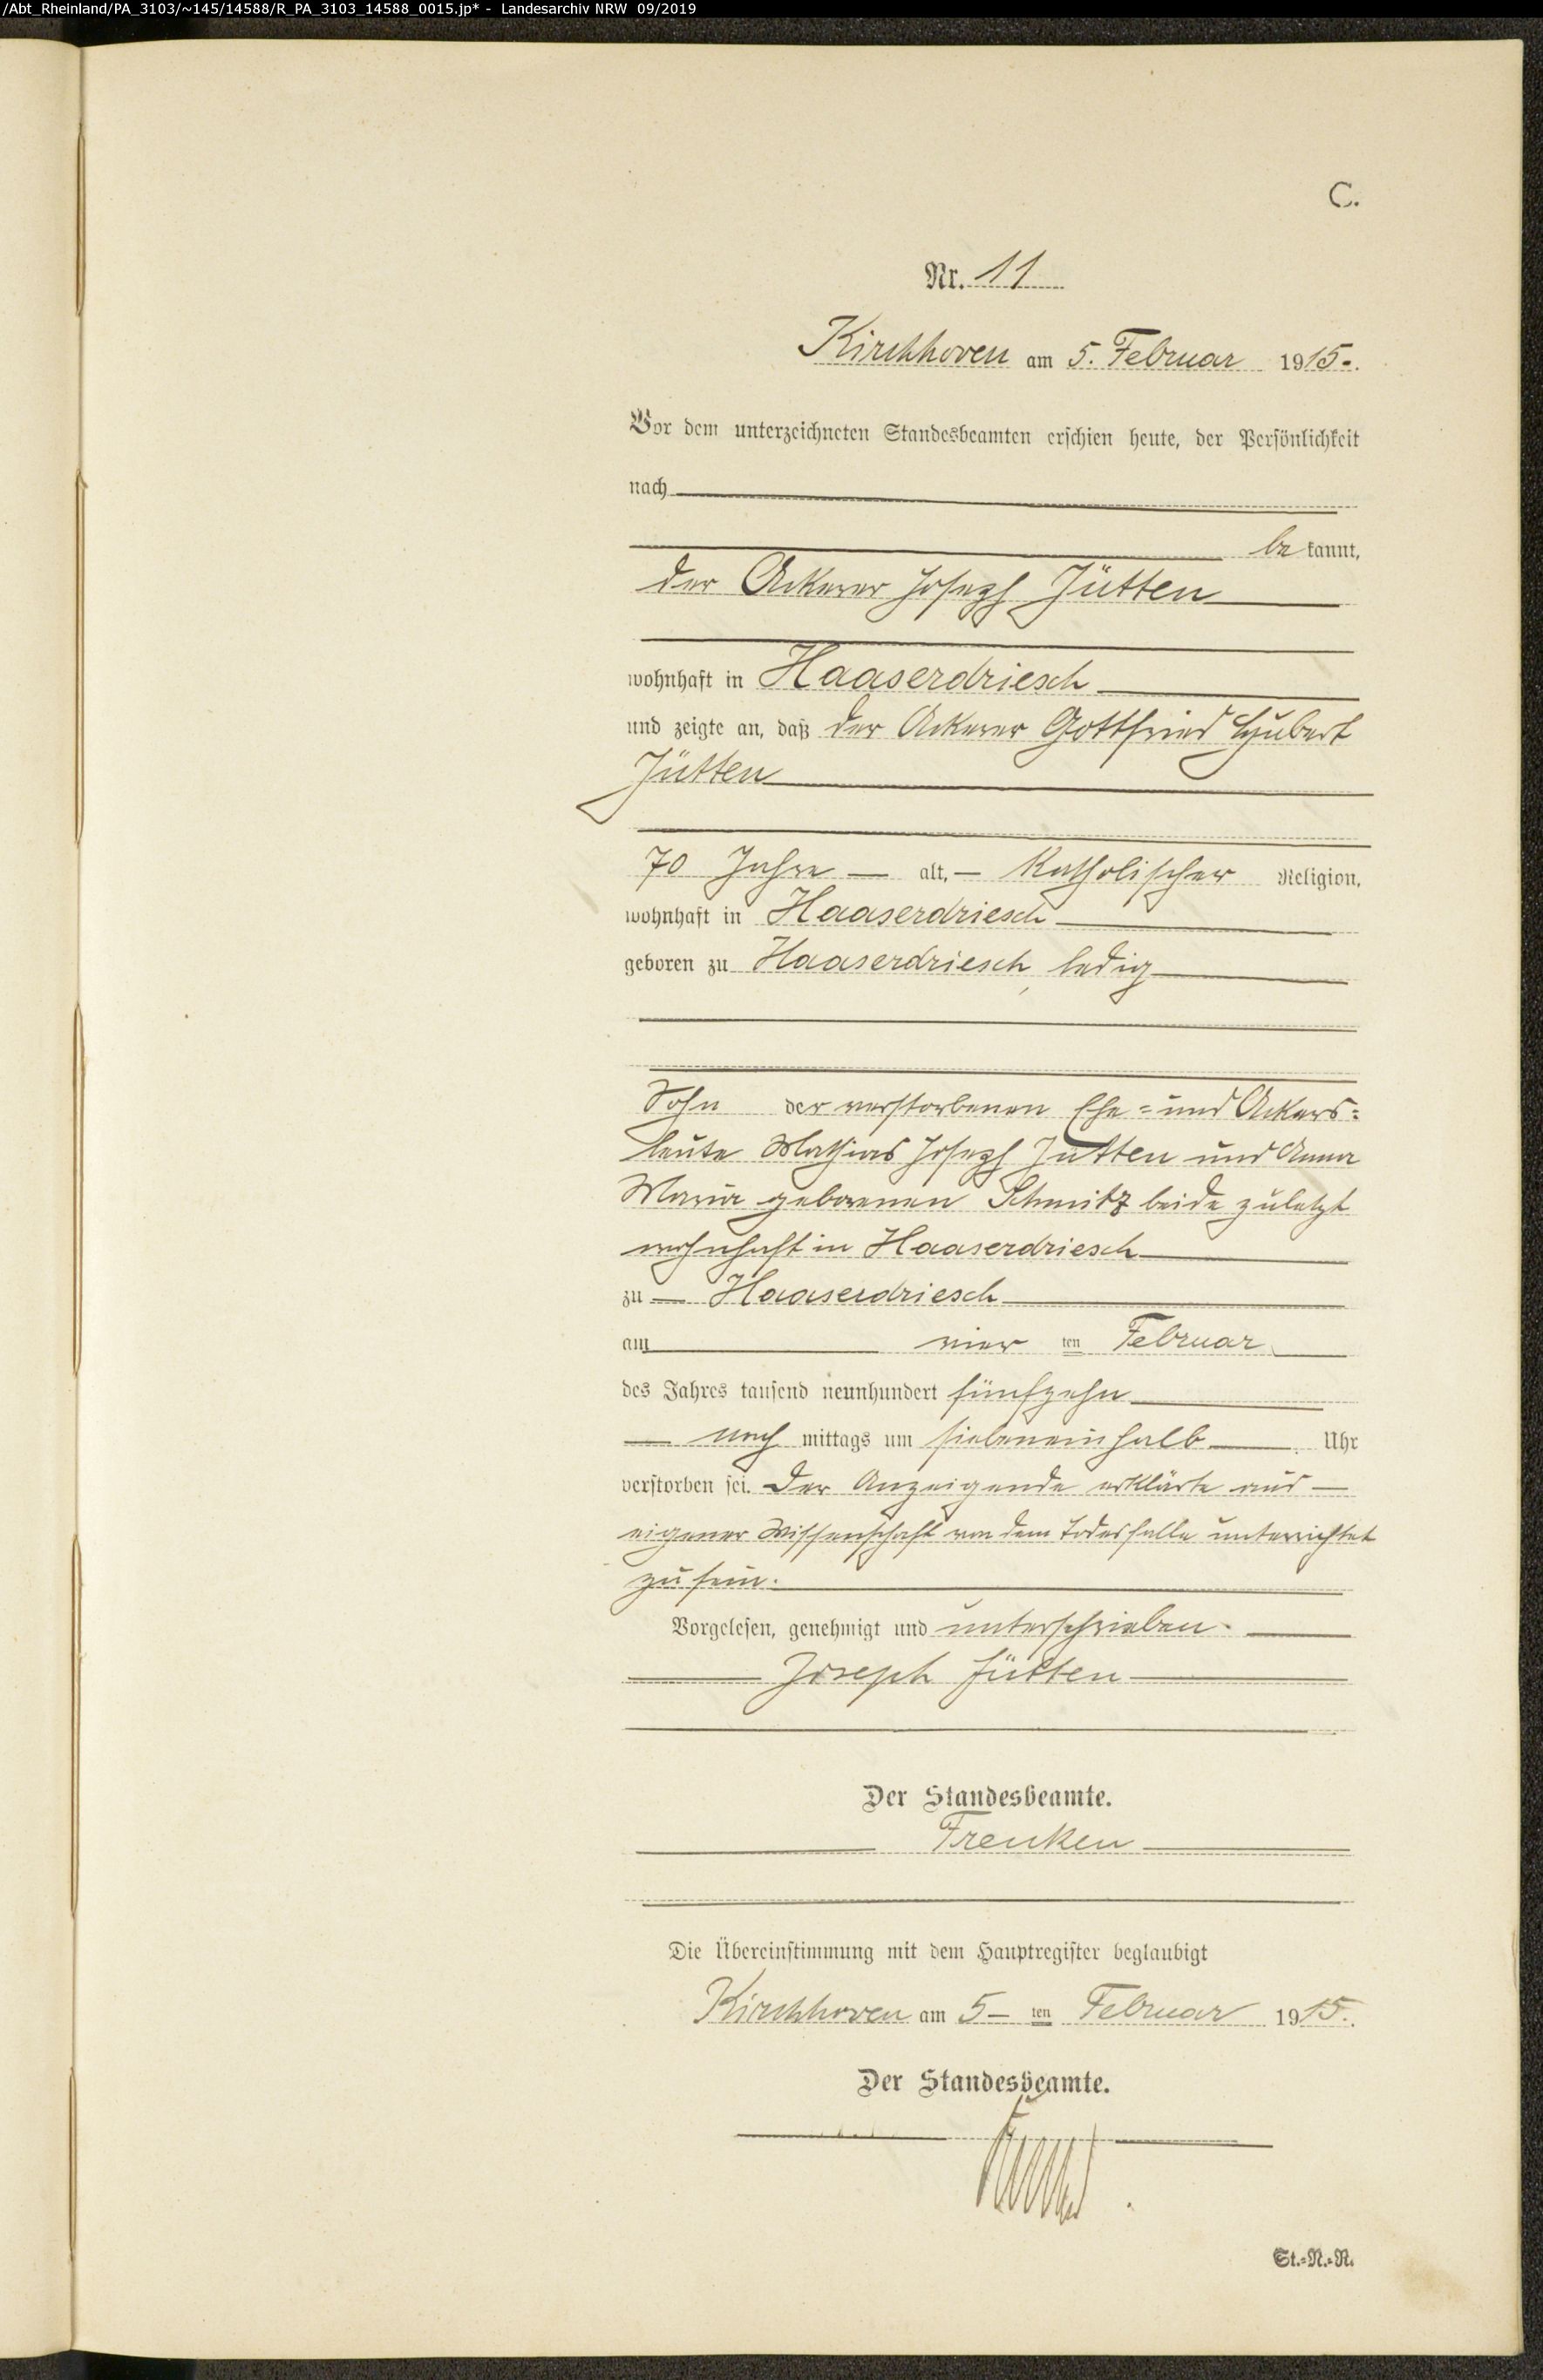 /Abt_Rheinland/PA_3103/~145/14588/R_PA_3103_14588_0015.jp* - Landesarchiv NRW 09/2019
C.
Nr. 11
Kirchhoven am 5. Februar 1915.
Vor dem unterzeichneten Standesbeamten erschien heute, der Persönlichkeit
nach
be kannt,
der Ackerer Joseph Jütten
wohnhaft in Haaserdriesch
und zeigte an, daß der Ackerer Gottfried Hubert
Jütten
70 Jahre — alt, — katholischer Religion,
wohnhaft in Haaserdriesch
geboren zu Haaserdriesch, ledig
Sohn der verstorbenen Ehe= und Ackers=
leute Mathias Joseph Jütten und Anna
Maria geborenen Schmitz beide zuletzt
wohnhaft in Haaserdriesch
zu — Haaserdriesch
am vier ten Februar
des Jahres tausend neunhundert fünfzehn
— nach mittags um siebeneinhalb Uhr
verstorben sei. Der Anzeigende erklärte aus —
eigener Wissenschaft von dem Todesfalle unterrichtet
zu sein.
Vorgelesen, genehmigt und unterschrieben.
Joseph Jütten
Der Standesbeamte.
Frenken
Die Übereinstimmung mit dem Hauptregister beglaubigt
Kirchhoven am 5 — ten Februar 1915.
Der Standesbeamte.
St.=N.=R.